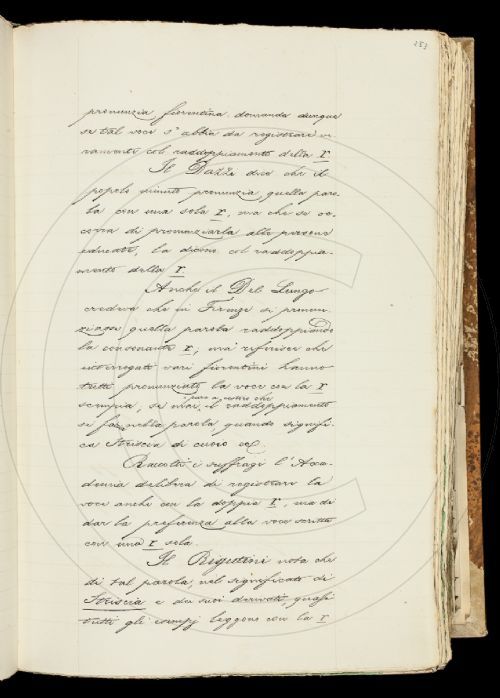 253
pronunzia fiorentina domanda dunque
se tal voce s'abbia da registrare
col raddoppiamento della r
Il Dazzi dice che il
popolo minuto pronunzia quella paro-
la con una sola r, ma che se oc-
corra di pronunziarla alle persone
educate, la dicono col raddoppia-
mento della r.
Anche il Del Lungo
credeva che in Firenze si pronun-
ziasse quella parola raddoppiando
la consonante r; ma riferisce che
interrogati vari fiorentini hanno
tutti pronunziato la voce con la r
scempia, se mai il raddoppiamento
si fa nella parola, quando signifi-
ca Striscia di cuoio ec.
Raccolti i suffragi l'Acca-
demia delibera di registrare la
voce anche con la doppia r, ma di
dar la preferenza alla voce scritta
con una r sola.
Il Rigutini nota che
di tal parola, nel significato di
Striscia e du suoi derivati, quasi
tutti gli esempj leggono con la r